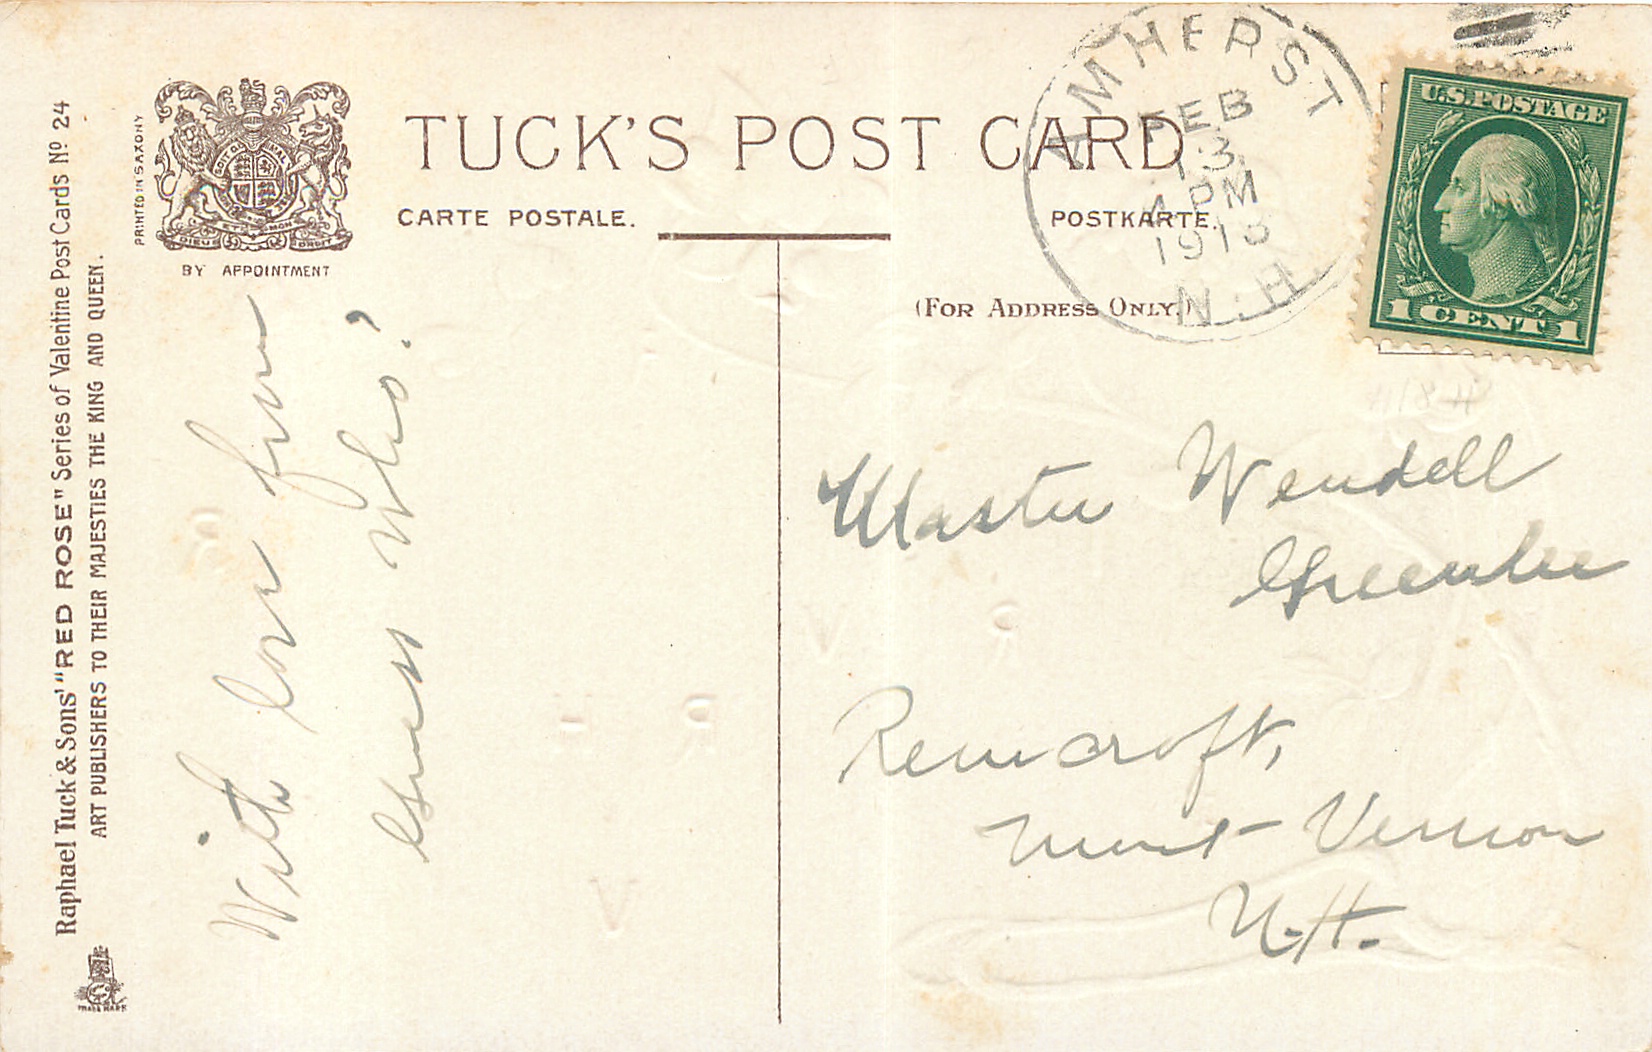 Raphael Tuck & Sons' "RED ROSE" Series of Valentine Post Cards Nº 24
ART PUBLISHERS TO THEIR MAJESTIES THE KING AND QUEEN.
TRADE MARK
PRINTED IN SAXONY
DIEU ET MON DROIT
BY APPOINTMENT
TUCK'S POST CARD
CARTE POSTALE.
POSTKARTE.
(FOR ADDRESS ONLY.)
AMHERST
FEB
13
4 PM
1913
N.H.
U.S. POSTAGE
1 CENT 1
With love from
Guess Who?
Master Wendell
Greenlee
Remcroft,
Mont Vernon
N.H.